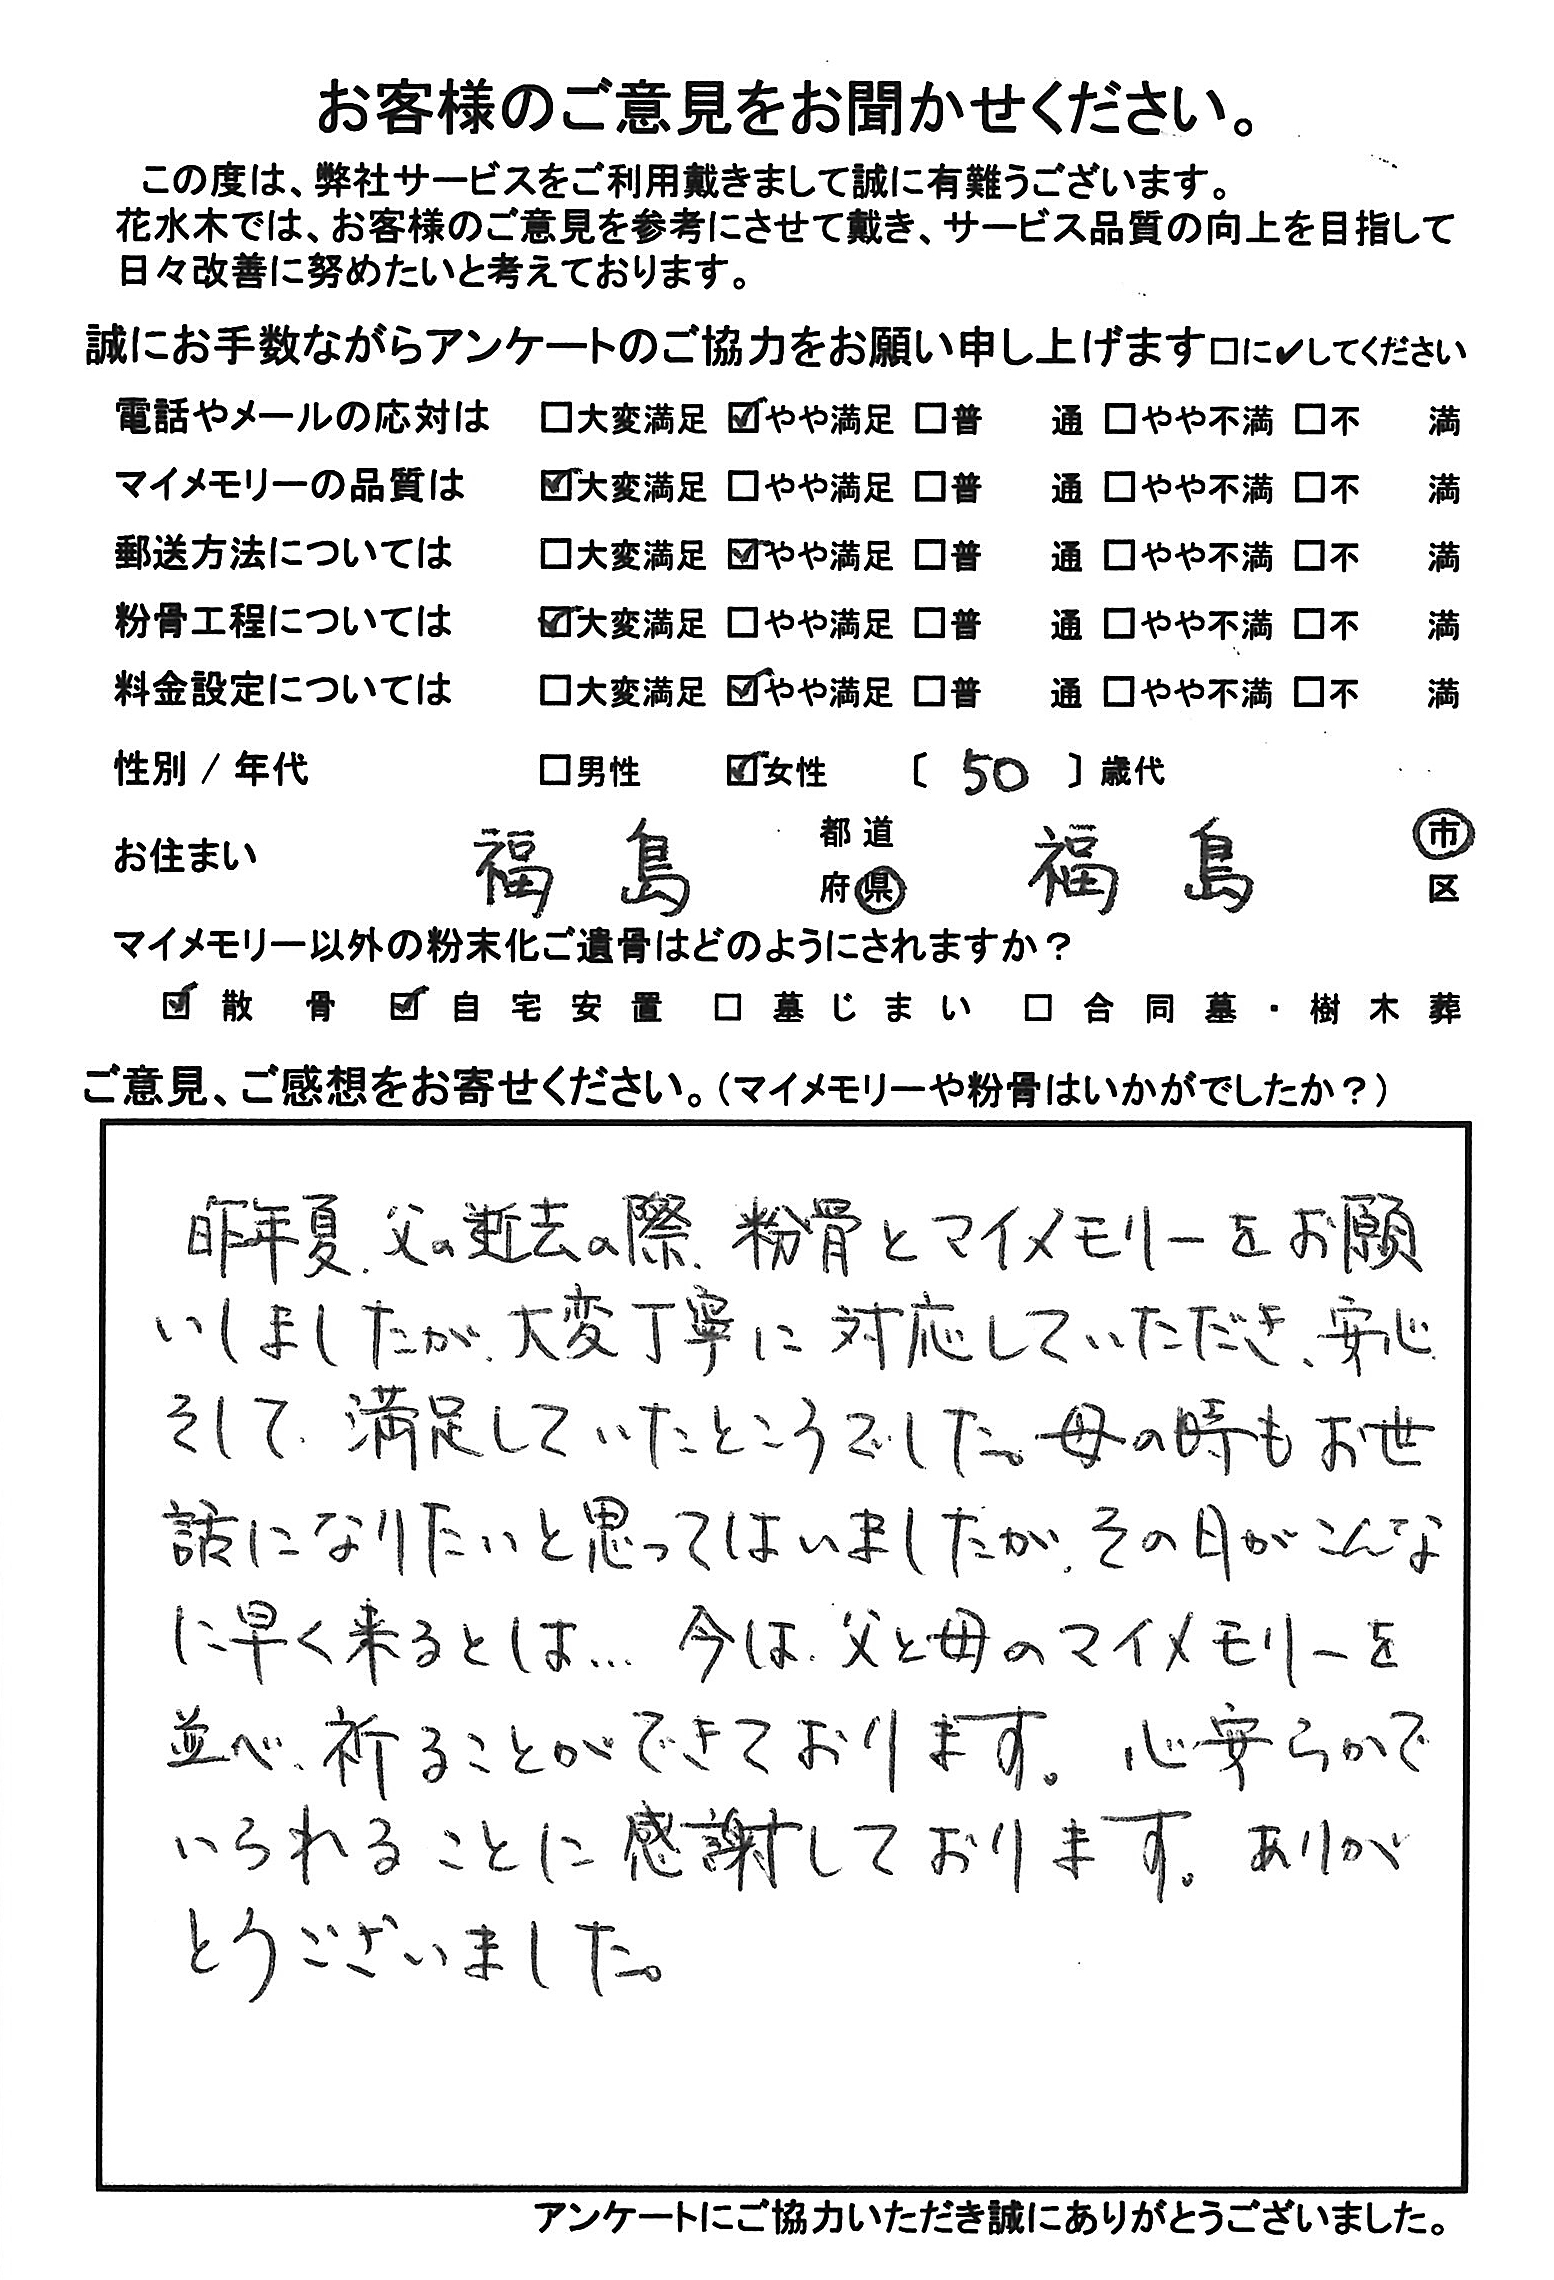 お客様のご意見をお聞かせください。
この度は、弊社サービスをご利用戴きまして誠に有難うございます。
花水木では、お客様のご意見を参考にさせて戴き、サービス品質の向上を目指して
日々改善に努めたいと考えております。
誠にお手数ながらアンケートのご協力をお願い申し上げます□に✔してください
電話やメールの応対は □大変満足 ☑やや満足 □普 通 □やや不満 □不 満
マイメモリーの品質は ☑大変満足 □やや満足 □普 通 □やや不満 □不 満
郵送方法については □大変満足 ☑やや満足 □普 通 □やや不満 □不 満
粉骨工程については ☑大変満足 □やや満足 □普 通 □やや不満 □不 満
料金設定については □大変満足 ☑やや満足 □普 通 □やや不満 □不 満
性別 / 年代 □男性 ☑女性 〔 50 〕歳代
お住まい 福島 都道府県 福島 市区
マイメモリー以外の粉末化ご遺骨はどのようにされますか?
☑散骨 ☑自宅安置 □墓じまい □合同墓・樹木葬
ご意見、ご感想をお寄せください。(マイメモリーや粉骨はいかがでしたか?)
昨年夏、父の逝去の際、粉骨とマイメモリーをお願
いしましたが、大変丁寧に対応していただき、安心、
そして、満足していたところでした。母の時もお世
話になりたいと思ってはいましたが、その日がこんな
に早く来るとは… 今は、父と母のマイメモリーを
並べ、祈ることができております。心安らかで
いられることに感謝しております。ありが
とうございました。
アンケートにご協力いただき誠にありがとうございました。